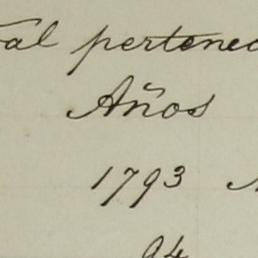 pertenec
Años
1793
94